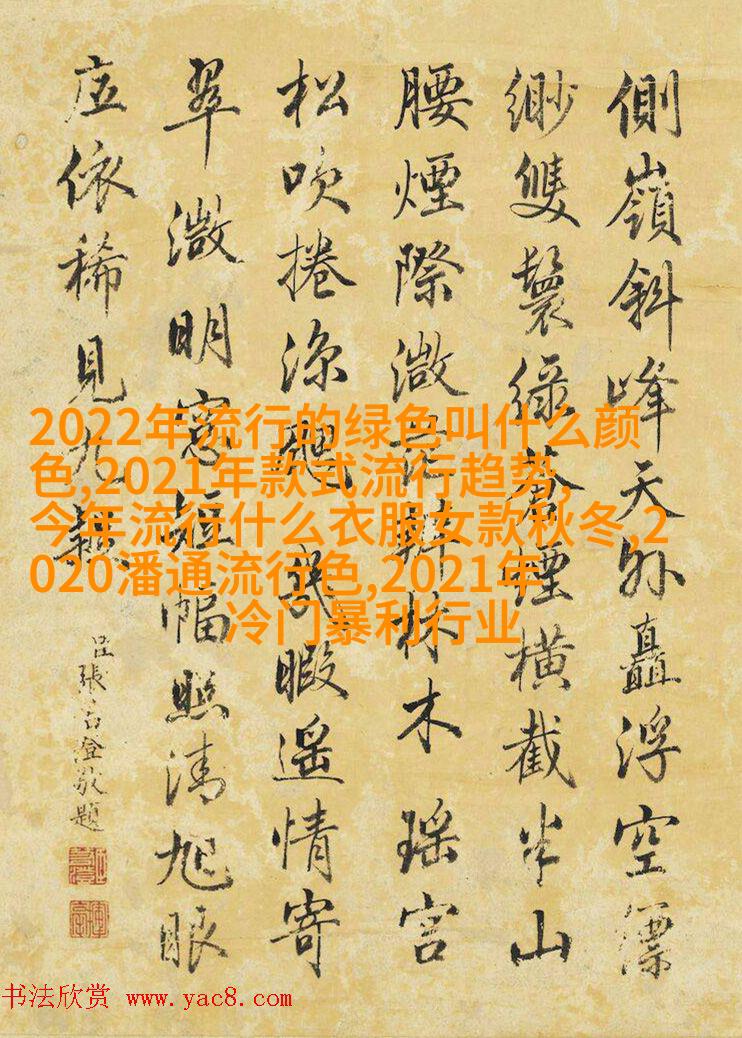 側嶺斜峰天外矗浮空縹
緲雙鬟綠蒼煙橫截半山
腰煙際微茫辨林木瑤宮
松吹捲涼幾暇遙情寄
翠微明窓短幅照清旭眼
底依稀見九
臣張若澄敬題
2022年流行的绿色叫什么颜
色,2021年款式流行趋势,
今年流行什么衣服女款秋冬,2
020潘通流行色,2021年
冷门暴利行业
书法欣赏 www.yac8.com